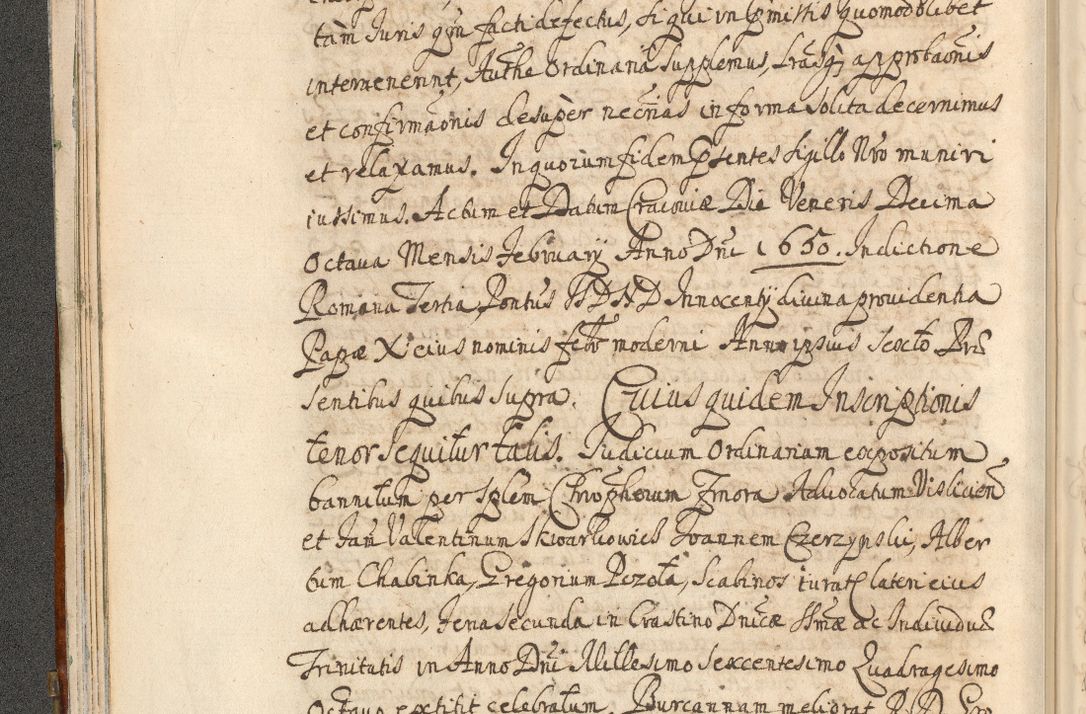 tam Juris qm facti defectus, si qui in pmissis quomodolibet
intervenerint, Authe Ordinaria supplemus, Lrasq approbaonis
et confirmaonis desuper necrias in forma solita decernimus
et relaxamus. In quorum fidem pñtes sigillo Nro muniri
iussimus. Actum et Datum Cracoviæ Die Veneris Decima
Octava Mensis February Anno Dni 1650. Indictione
Romana Tertia, Pontus SSDND Innocenty divina providentia
Papæ X eius nominis moderni Anno ipsius sexto Præ
sentibus quibus supra. Cuius quidem Inscriptionis
tenor sequitur talis. Judicium Ordinarium expositum
bannitum per Splem Chrophorum Advocatum Vislicien
et Jam Valentinum Skwarkowicz Joannem Czerzynski, Alber
tum Chabinka, Gregorium Pezola, Scabinos iurat lateri eius
adhærentes, feria secunda in Crastino Dnicæ SSmæ ac Individuæ
Trinitatis in Anno Dni Millesimo sexcentesimo Quadragesimo
Octavo extitit celebratum. Burcannam meliorat